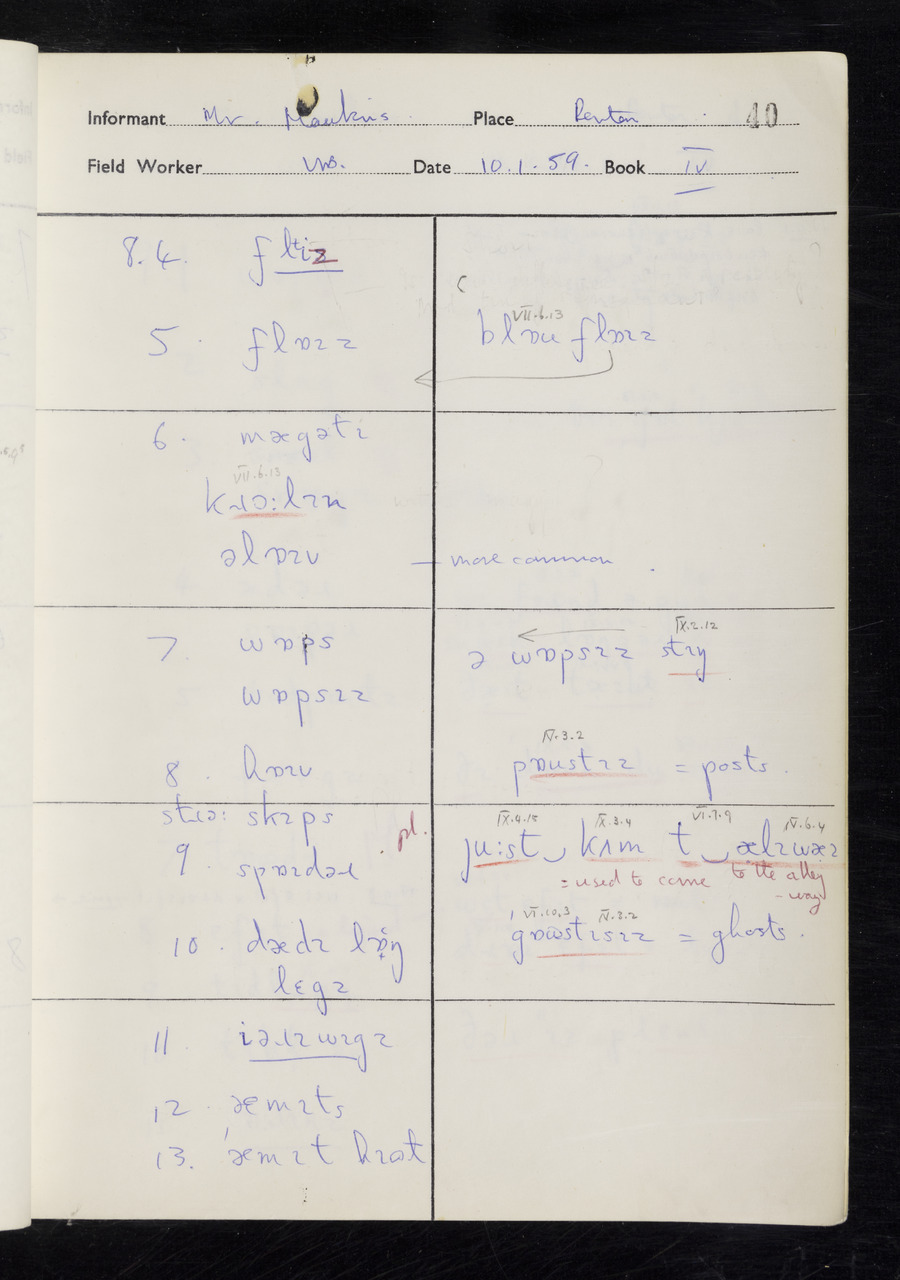 Informant Mr. Hawkins Place Renton 40
Field Worker Date 10.1.59. Book IV
8.4. fliz
5. flɒɪz
c
VII.6.13
blɒu flɒɪz
6. mægətɪ
VII.6.13
kɹɔ:lɪn
əlɒɪv — more common.
7. wɒps
wɒpsɪz
IX.2.12
ə wɒpsɪz
8. hɒɪv
IV.3.2
pɒustɪz = posts.
skɪps
pl.
9. spɒɪdəɹ
IX.4.15 IX.3.4 VI.7.9 IV.6.4
ju:st kʌm t
= used to come to the alley
-way
10. dædɪ
lɛgz
VI.10.3 IV.3.2
= ghosts.
11. iəɹɪwɪgz
12. æmɪts
13.